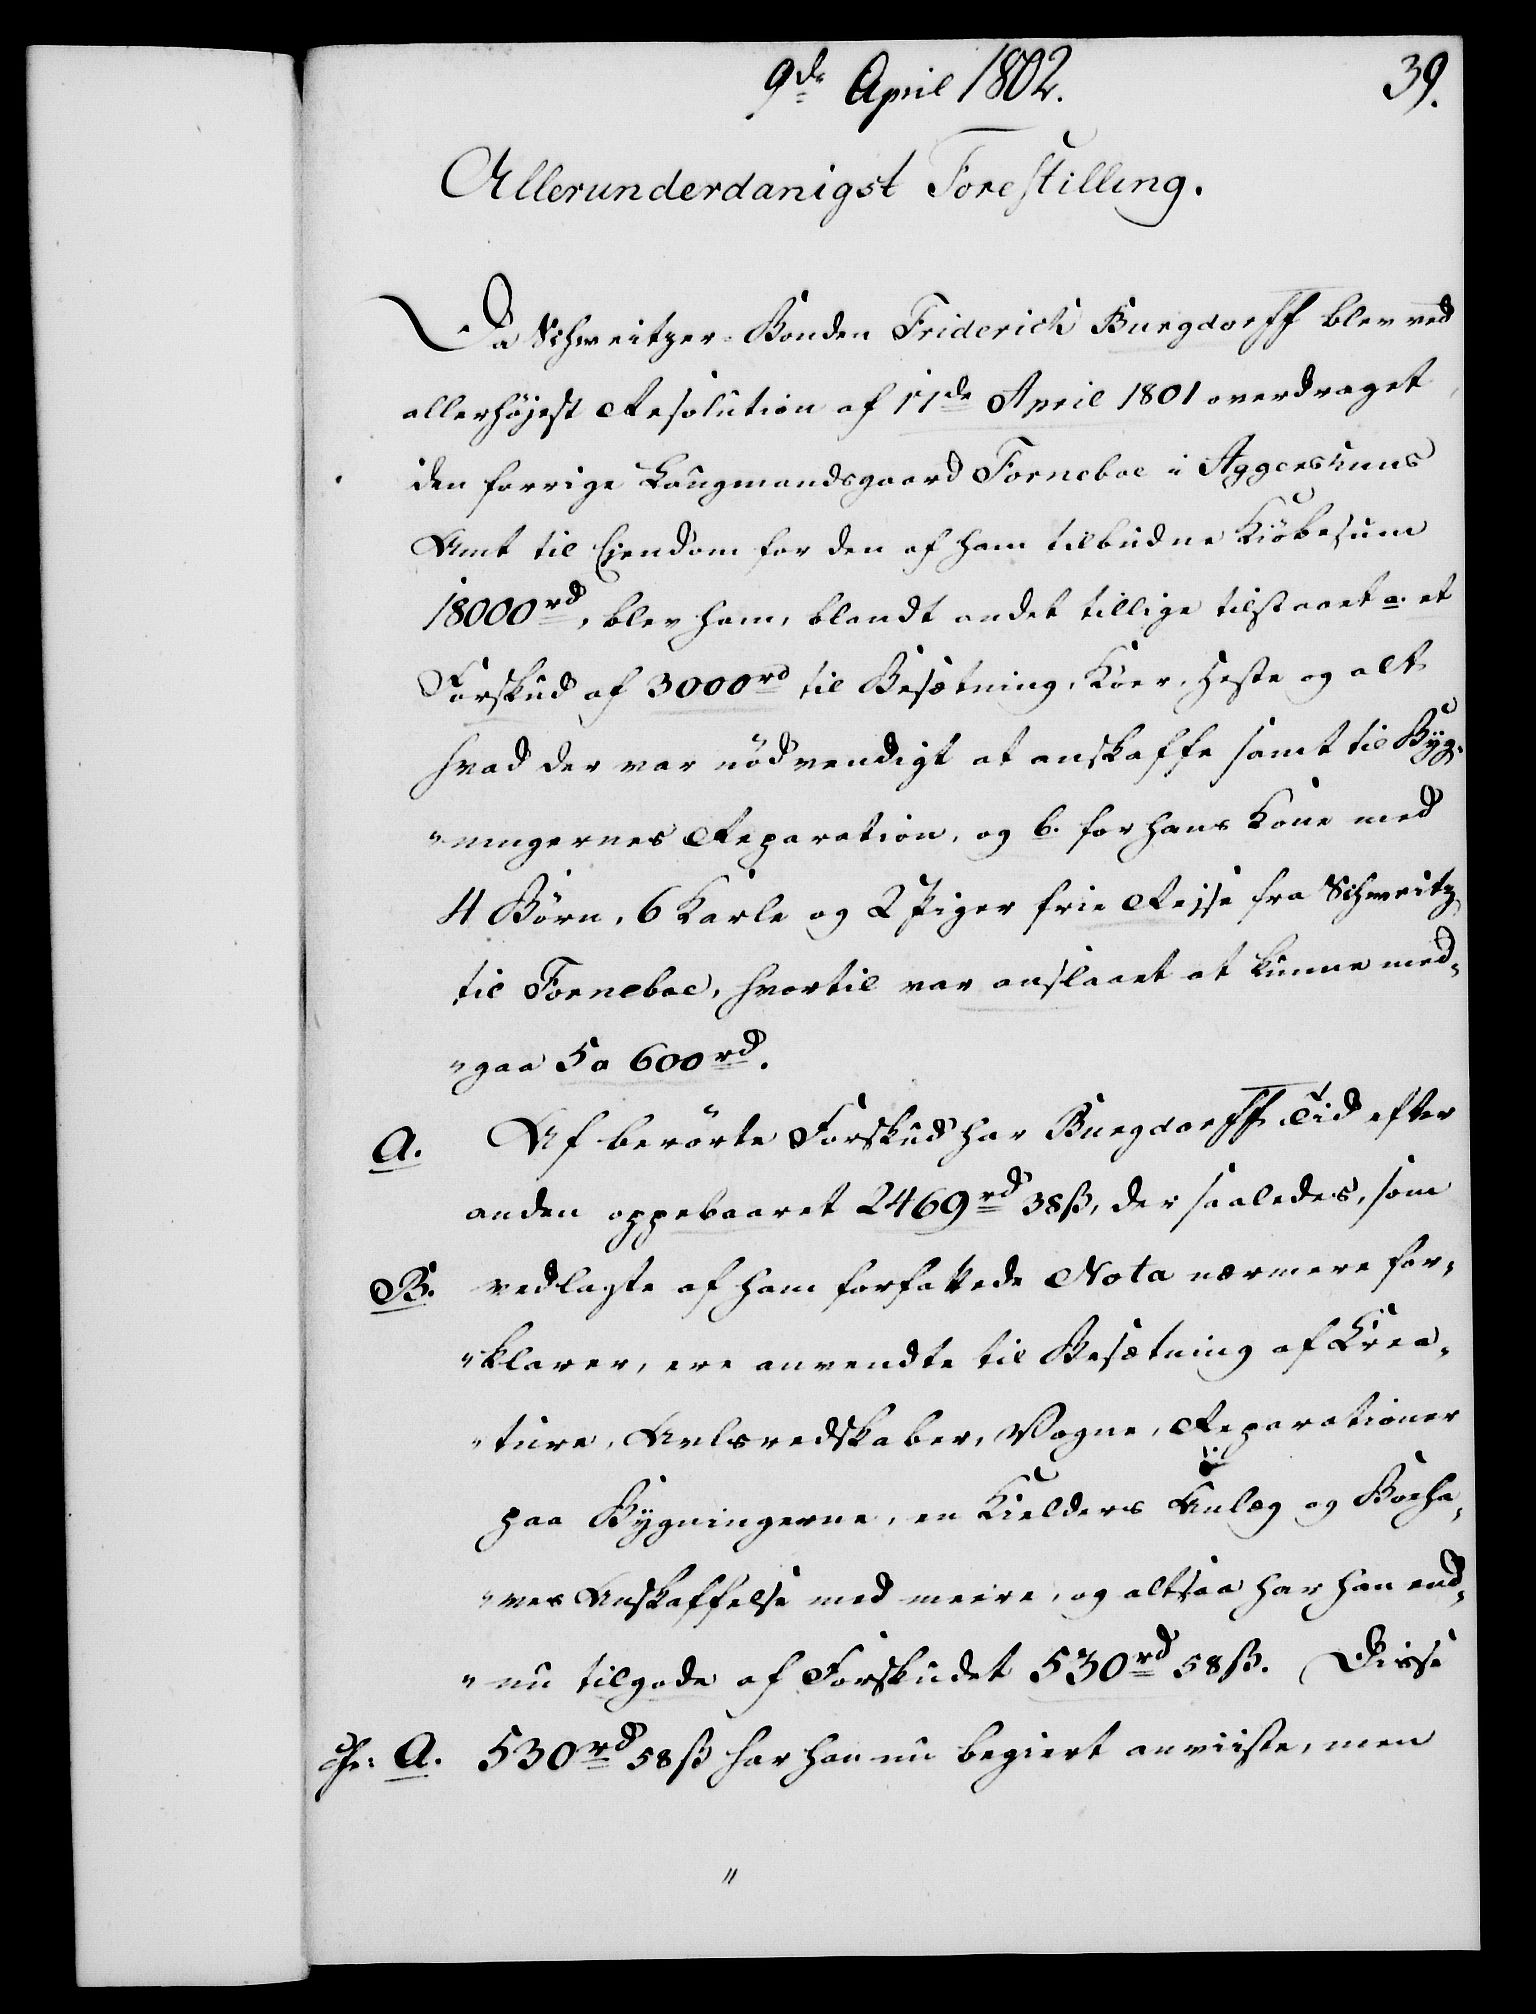 9de April 1802.
39.
Allerunderdanigst Forestilling.
Da Schweitzer-Bonden Friderich Burgdorff blev ved
allerhøjest Resolution af 11de April 1801 overdraget
den forrige Laugmandsgaard Forneboe i Aggershuus
Amt til Eiendom for den af ham tilbudne Kiöbesum
18000rd, blev ham, blandt andet tillige tilstaaet a. et
Forskud af 3000rd til Besætning, Köer, Heste og alt
hvad der var nödvendigt at anskaffe samt til Byg-
"ningernes Reparation, og b. for hans Kone med
4 Børn, 6 Karle og 2 Piger frie Reise fra Schweitz
til Forneboe, hvortil var anslaaet at kunne med-
"gaa 5 a 600rd.
A. Af berörte Forskud har Burgdorff Tid efter
anden oppebaaret 2469rd 38ß, der saaledes, som
B. vedlagte af ham forfattede Nota nærmere for-
"klarer, ere anvendte til Besætning af Krea-
"ture, Avlsredskaber, Vogne, Reparationer
paa Bygningerne, en Kielders Anlæg og Boeha-
"ves Anskaffelse med meere, og altsaa har han end-
"nu tilgode af Forskudet 530rd 58ß. Disse
A. 530rd 58ß har han nu begiert anviiste, men
"